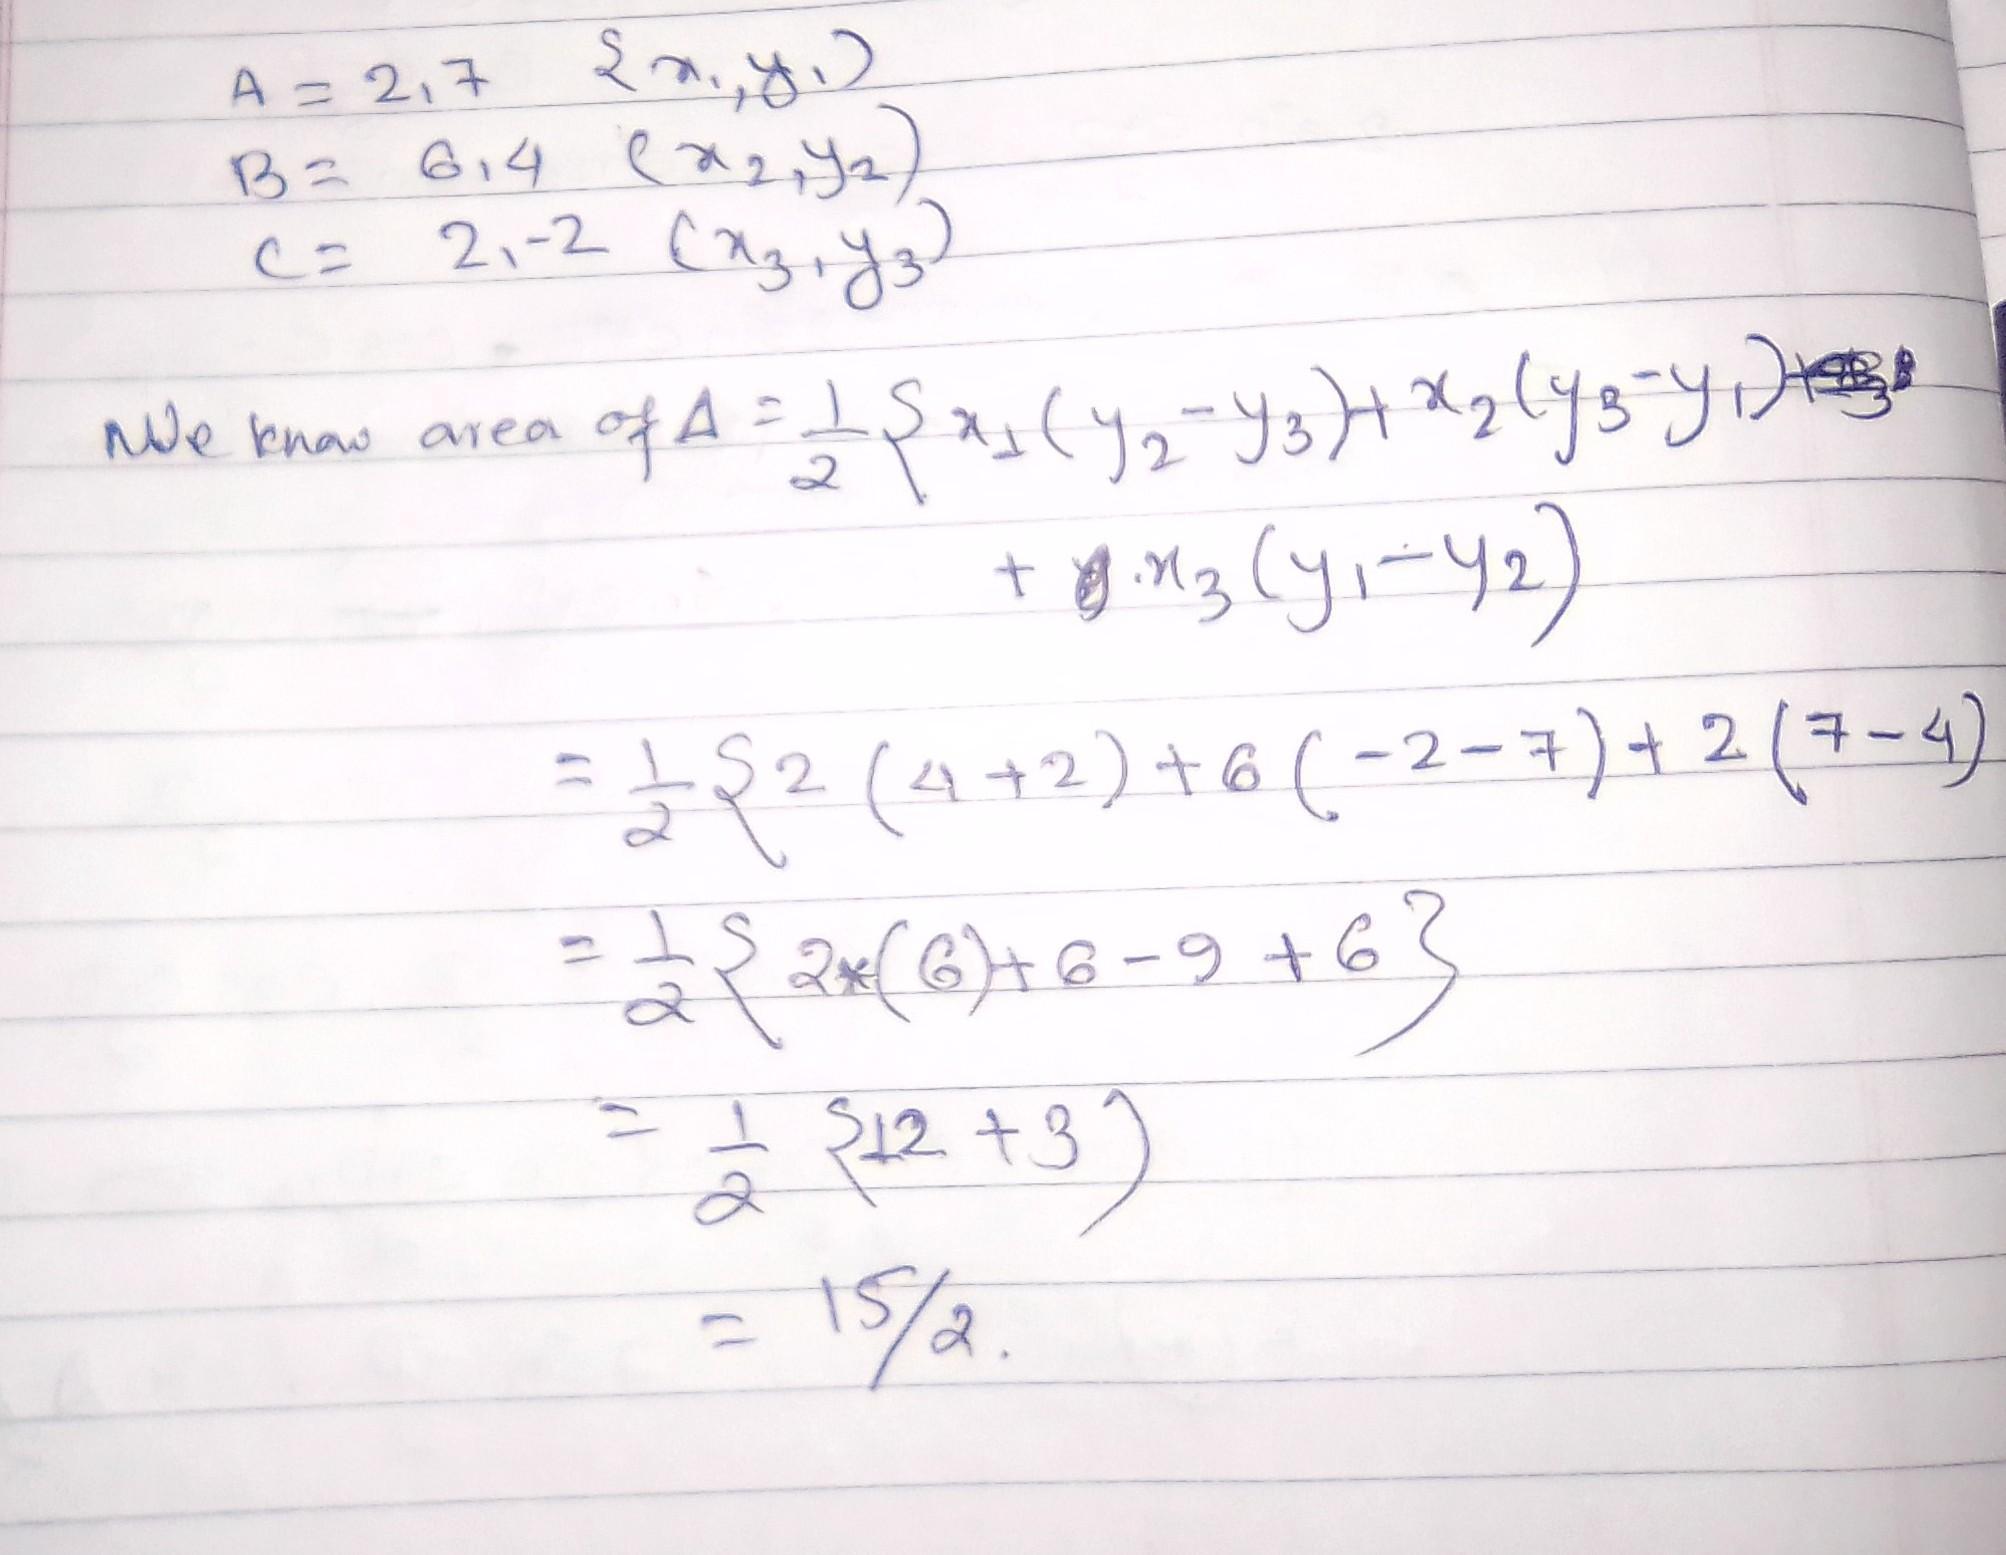 A = 2,7 {x₁,y₁)
B = 6,4 (x₂,y₂)
C = 2,-2 (x₃,y₃)
We know area of Δ = 1/2 { x₁(y₂-y₃)+x₂(y₃-y₁)+
+ x₃(y₁-y₂)
= 1/2 {2 (4+2)+6(-2-7)+2(7-4)
= 1/2 { 2*(6)+6-9+6}
= 1/2 {12+3)
= 15/2.